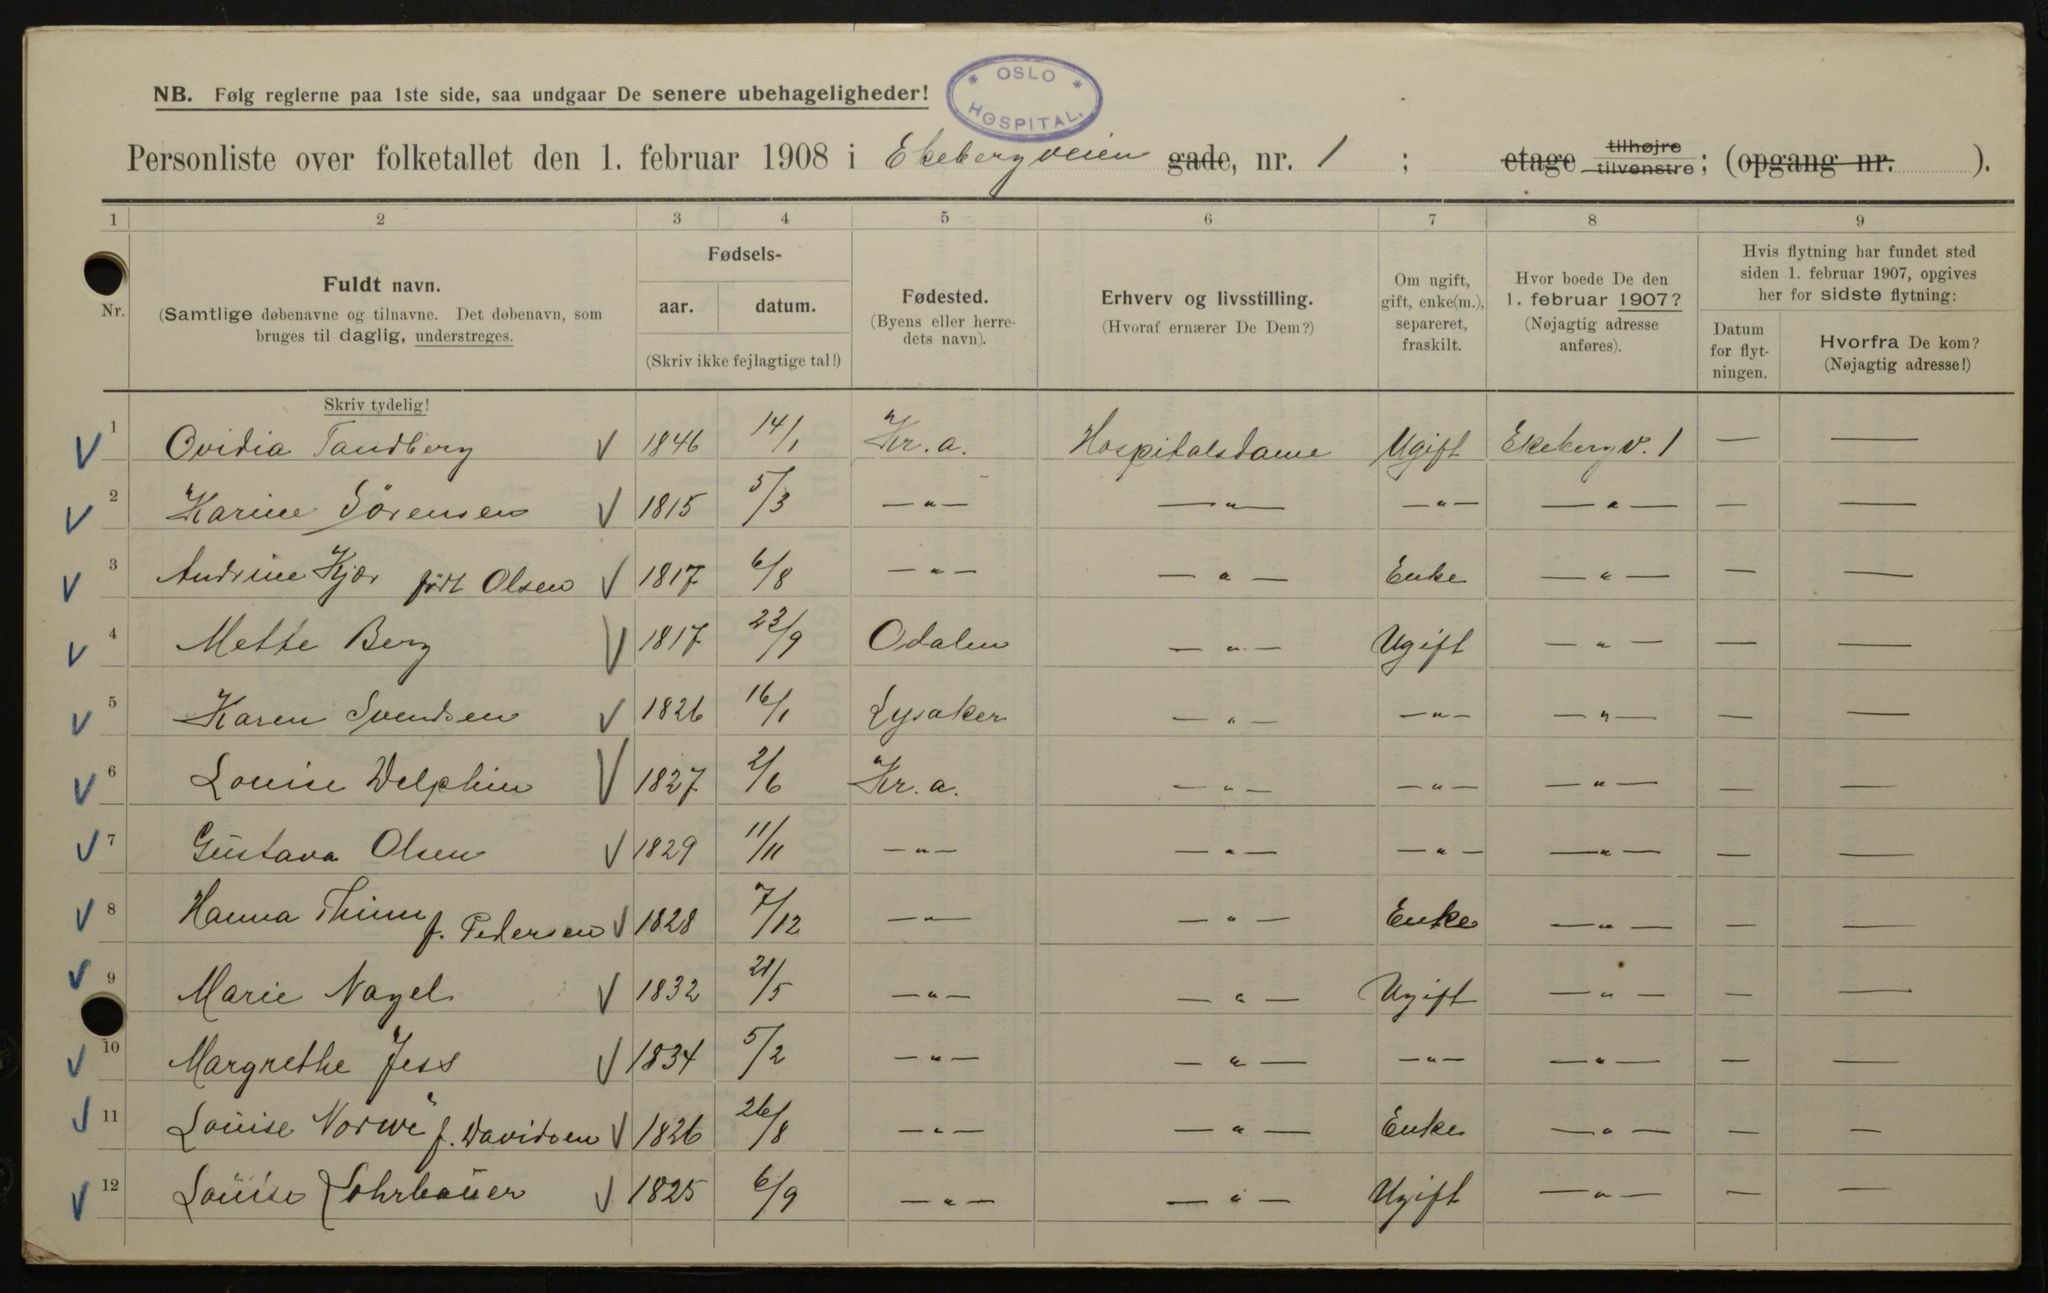 NB. Følg reglerne paa 1ste side, saa undgaar De senere ubehageligheder!
* OSLO *
HOSPITAL.
Personliste over folketallet den 1. februar 1908 i Ekebergveien gade, nr. 1 ; etage tilhøjre tilvenstre; (opgang nr. ).
1 2 3 4 5 6 7 8 9
Nr.
Fuldt navn.
(Samtlige døbenavne og tilnavne. Det døbenavn, som
bruges til daglig, understreges.
Skriv tydelig!
Fødsels-
aar. datum.
(Skriv ikke fejlagtige tal!)
Fødested.
(Byens eller herre-
dets navn).
Erhverv og livsstilling.
(Hvoraf ernærer De Dem?)
Om ugift,
gift, enke(m.),
separeret,
fraskilt.
Hvor boede De den
1. februar 1907?
(Nøjagtig adresse
anføres).
Hvis flytning har fundet sted
siden 1. februar 1907, opgives
her for sidste flytning:
Datum
for flyt-
ningen.
Hvorfra De kom?
(Nøjagtig adresse!)
1 Ovidia Tandberg 1846 14/1 Kr.a. Hospitalsdame Ugift Ekebergv. 1 — —
2 Karine Sørensen 1815 5/3 —"— —"— —"— —"— — —
3 Andrine Kjær født Olsen 1817 6/8 —"— —"— Enke —"— — —
4 Mette Berg 1817 23/9 Odalen —"— Ugift —"— — —
5 Karen Svendsen 1826 16/1 Lysaker —"— —"— —"— — —
6 Louise Delphin 1827 2/6 Kr.a. —"— —"— —"— — —
7 Gustava Olsen 1829 11/11 —"— —"— —"— —"— — —
8 Hanna Thime f. Pedersen 1828 7/12 —"— —"— Enke —"— — —
9 Marie Nagel 1832 21/5 —"— —"— Ugift —"— — —
10 Margrethe Jess 1834 5/2 —"— —"— —"— —"— — —
11 Louise Norwe f. Davidsen 1826 26/8 —"— —"— Enke —"— — —
12 Louise Lohrbauer 1825 6/9 —"— —"— Ugift —"— — —